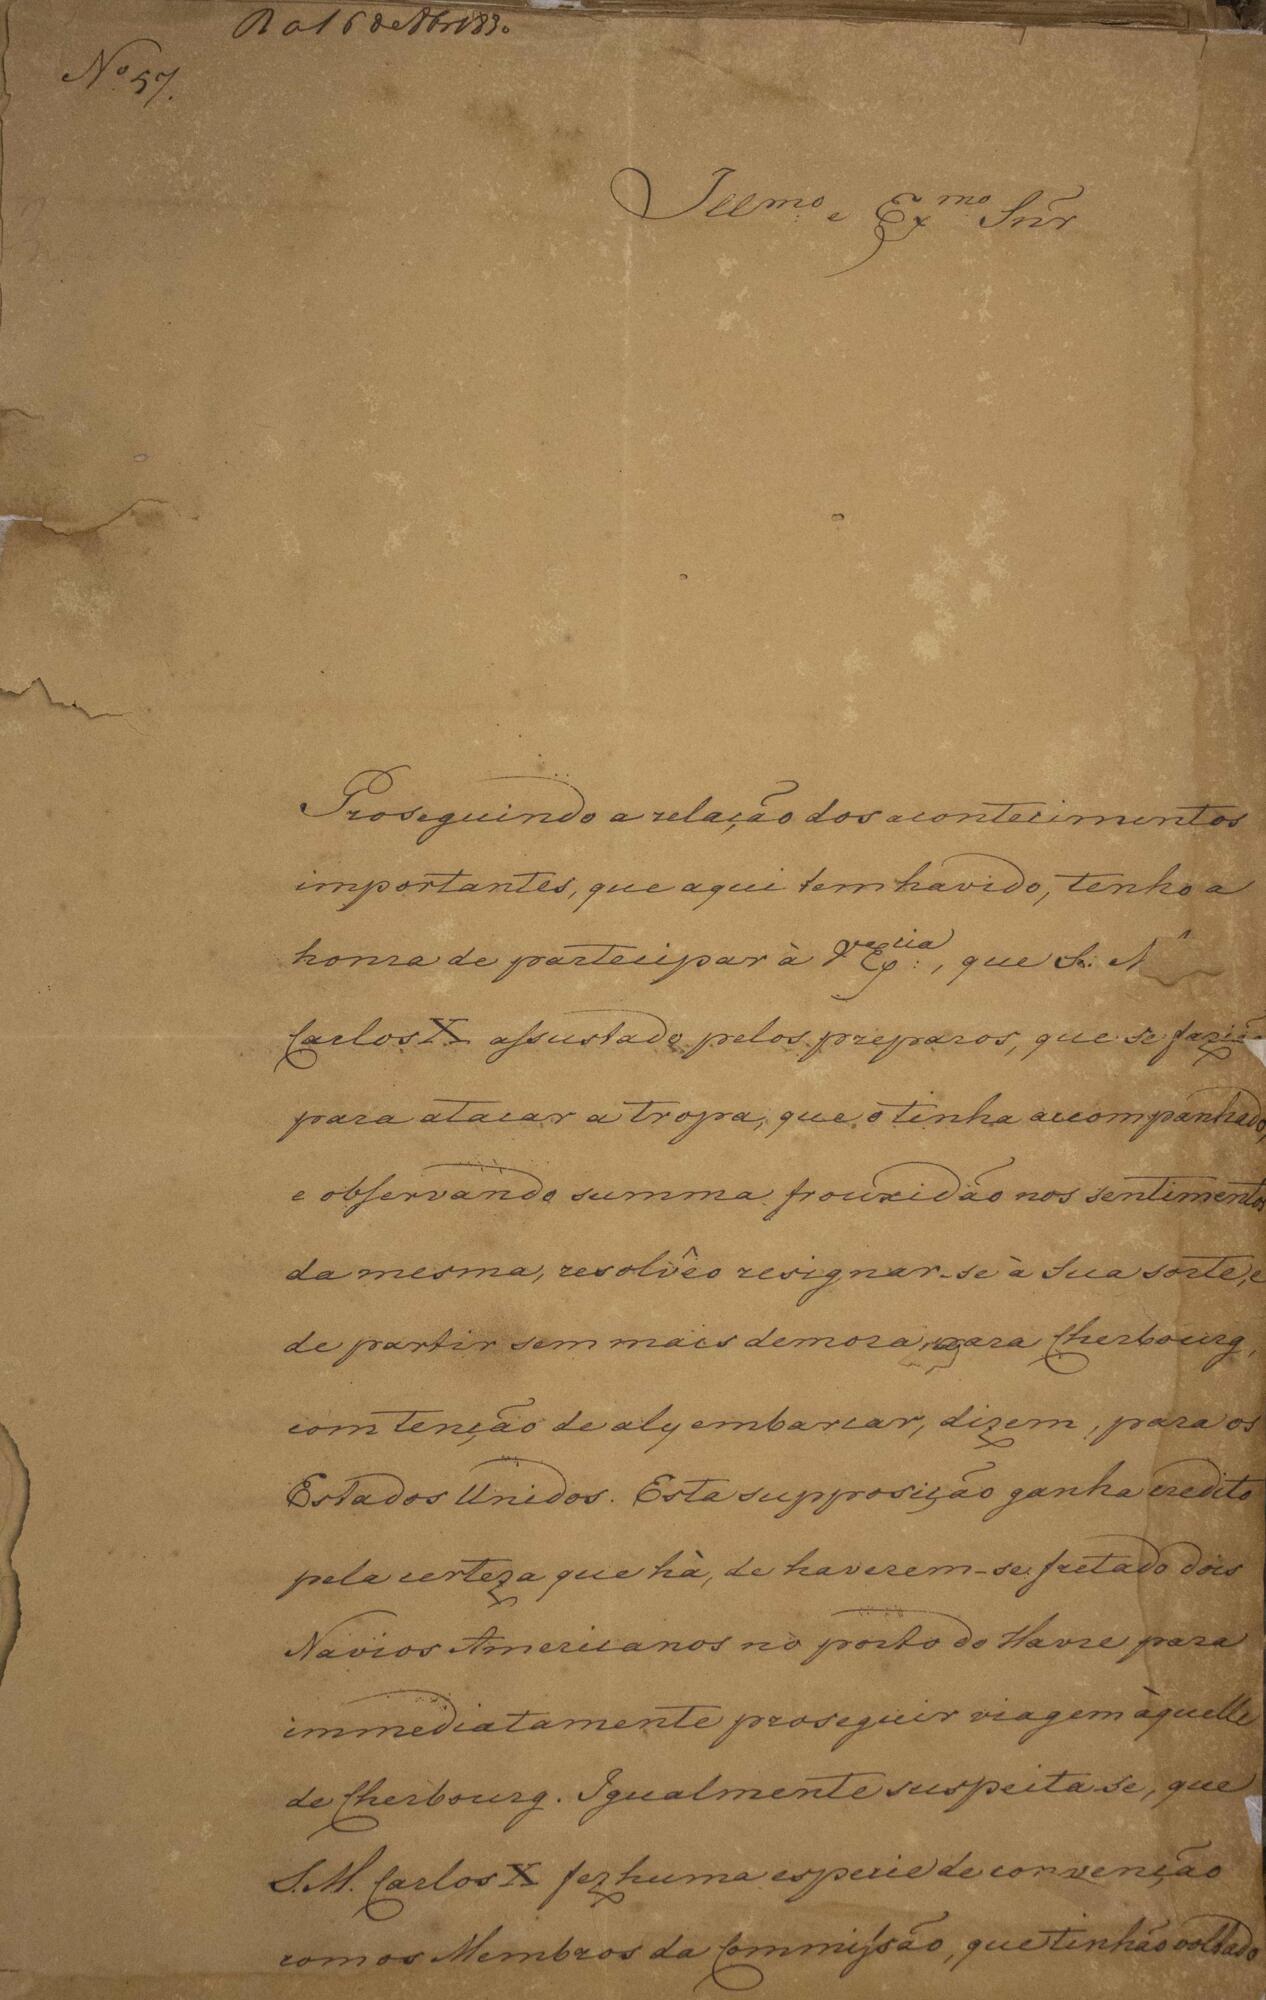 R a 16 de Abril 830
Nº 57.
Illmo. e Exmo Snr
Proseguindo a relação dos acontecimentos
importantes, que aqui tem havido, tenho a
honra de partecipar à Vª Excia., que S. M
Carlos X assustado pelos preparos, que se fazião
para atacar a tropa, que o tinha accompanhado,
e observando summa frouxidão nos sentimentos
da mesma, resolvêo resignar-se à Sua sorte, e
de partir sem mais demora para Cherbourg,
com tenção de aly embarcar, dizem, para os
Estados Unidos. Esta supposição ganha credito
pela certeza que hà, de haverem-se fretado dois
Navios Americanos no porto do Havre para
immediatamente proseguir viagem àquelle
de Cherbourg. Igualmente suspeita-se, que
S. M. Carlos X fez huma especie de convenção
com os Membros da Commissão, que tinhão voltado